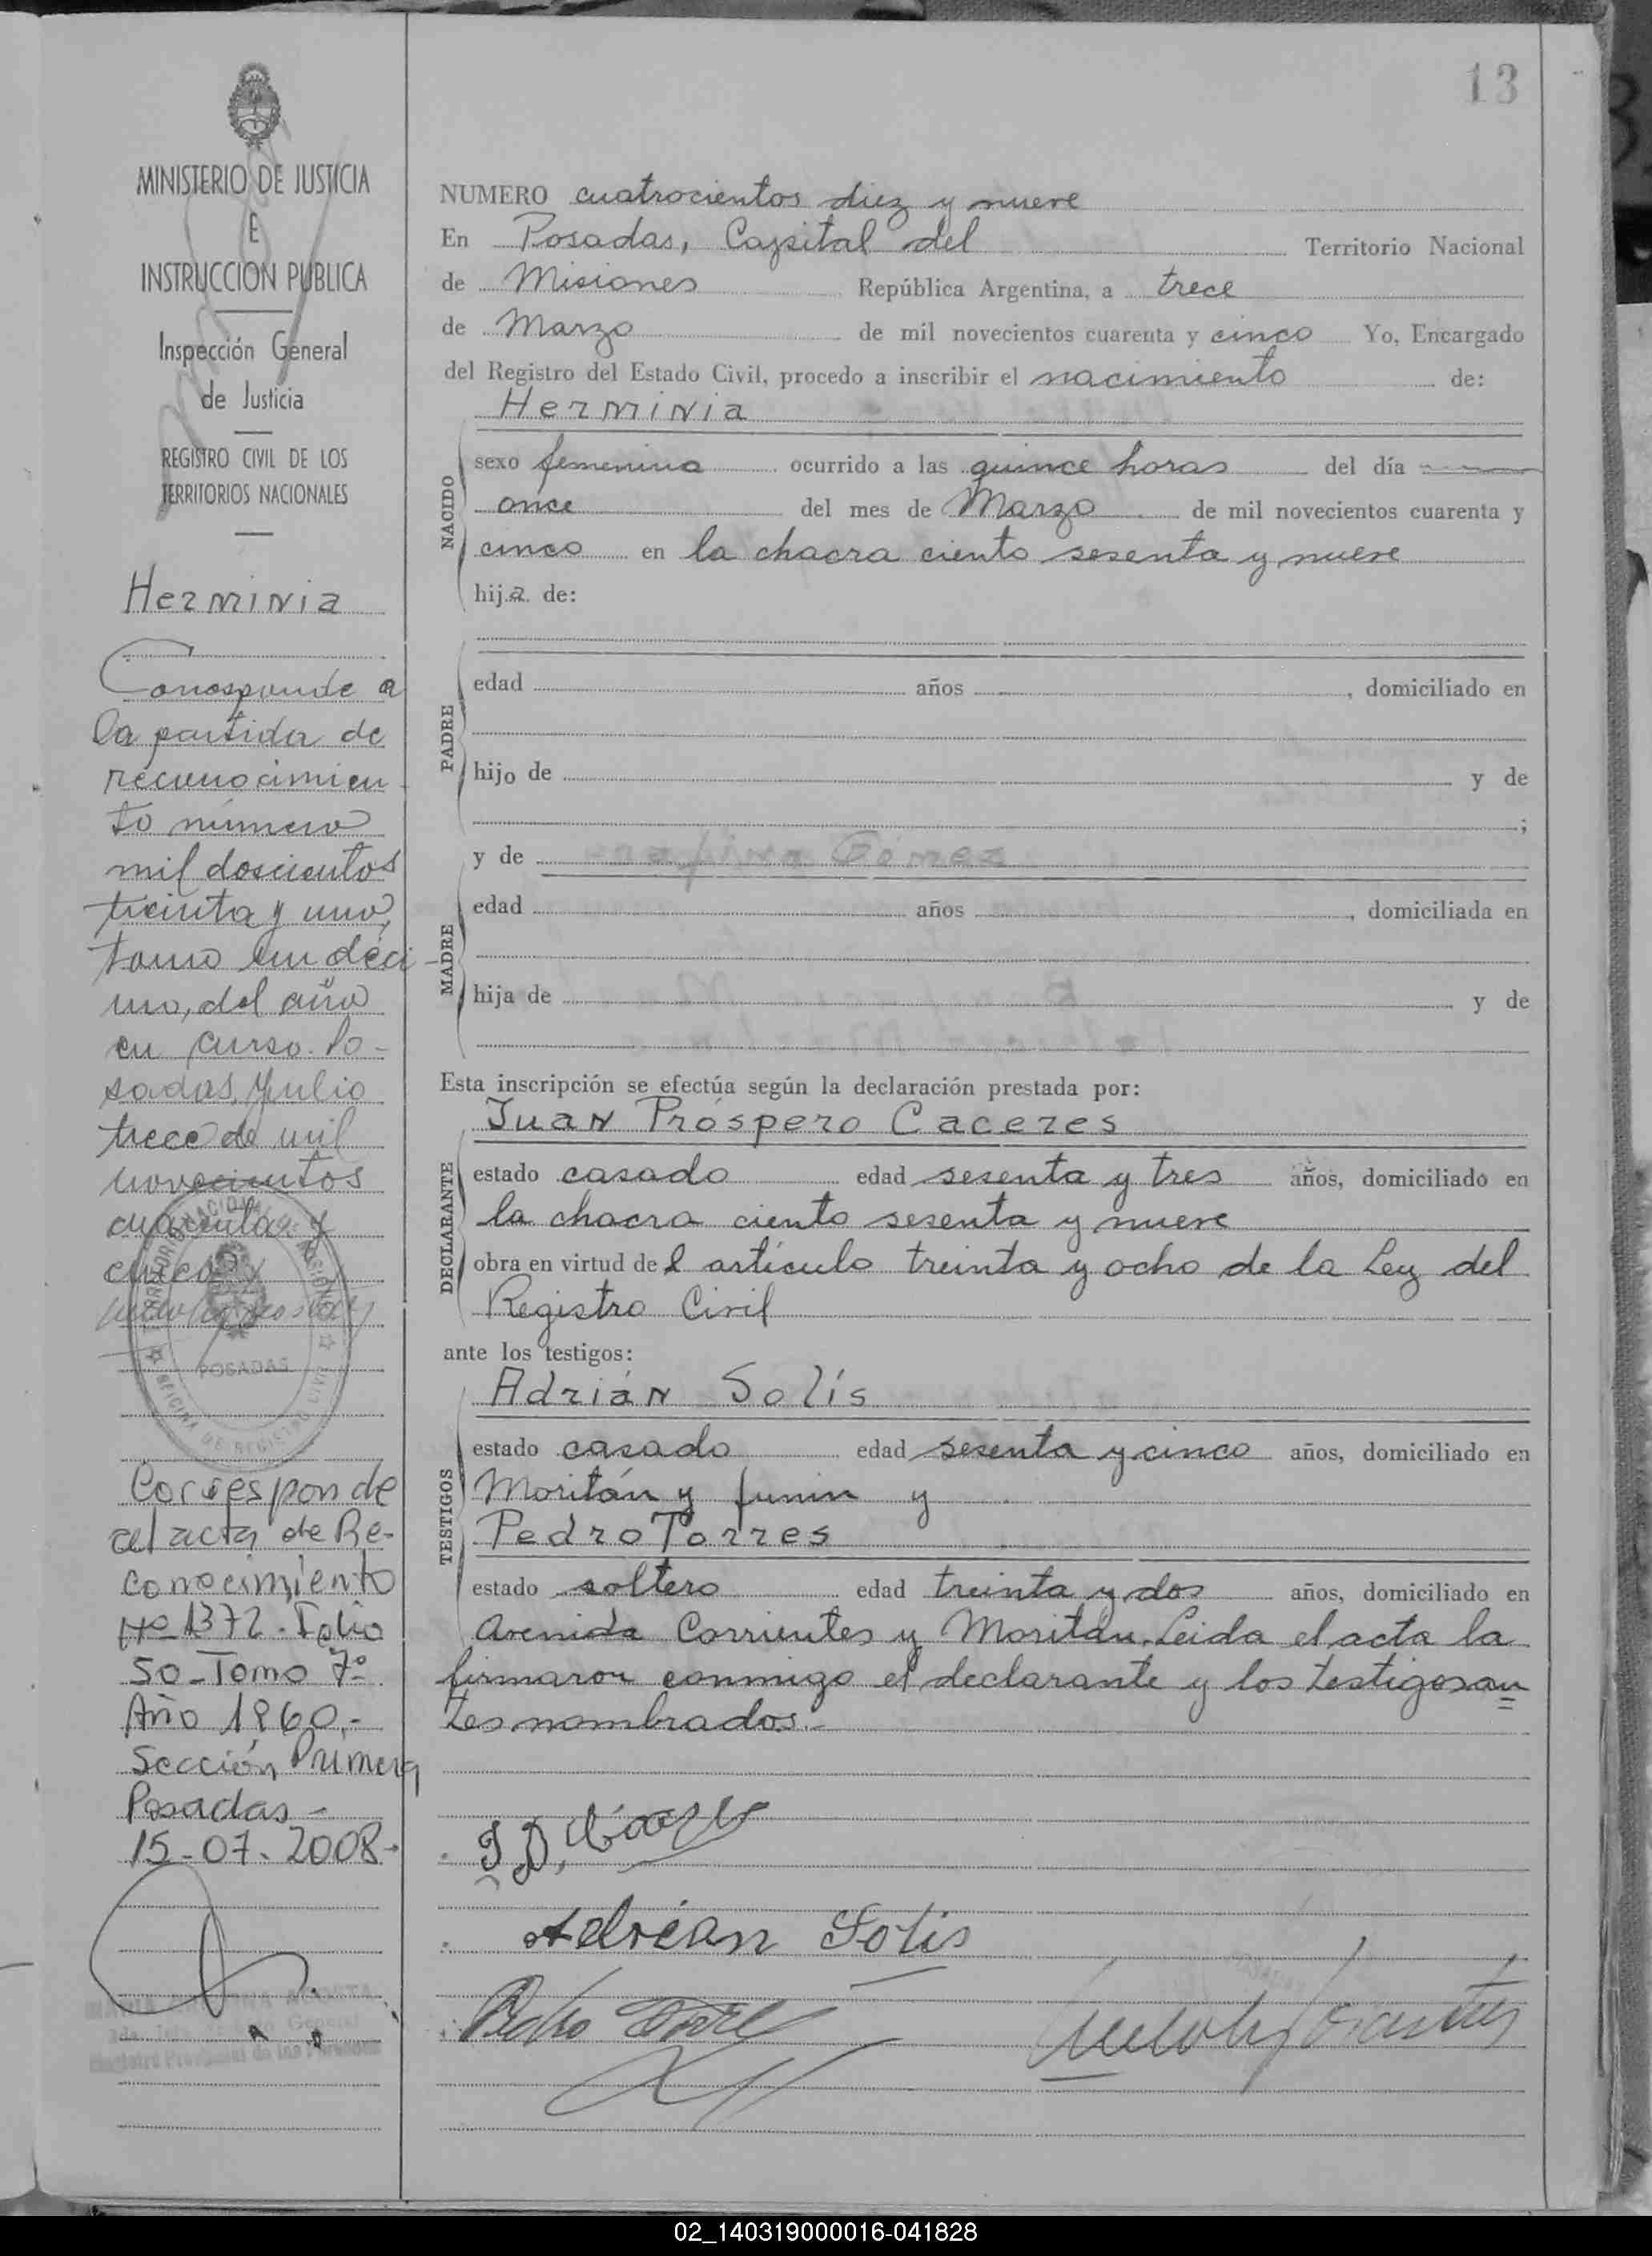 13
MINISTERIO DE JUSTICIA
E
INSTRUCCION PUBLICA
Inspección General
de Justicia
REGISTRO CIVIL DE LOS
TERRITORIOS NACIONALES
Herminia
Corresponde a
la partida de
reconocimien
to número
mil doscientos
treinta y uno,
tomo undéci-
mo, del año
en curso. Po-
sadas, Julio
trece de mil
novecientos
cuarenta y
cinco
POSADAS
Corresponde
al acta de Re-
conocimiento
Nº 1372. Folio
50-Tomo 7º
Año 1960.-
Sección Primera
Posadas-
15-07-2008-
NUMERO cuatrocientos diez y nueve
En Posadas, Capital del Territorio Nacional
de Misiones República Argentina, a trece
de Marzo de mil novecientos cuarenta y cinco Yo, Encargado
del Registro del Estado Civil, procedo a inscribir el nacimiento de:
Herminia
NACIDO
sexo femenino ocurrido a las quince horas del día
once del mes de Marzo de mil novecientos cuarenta y
cinco en la chacra ciento sesenta y nueve
hija de:
PADRE
edad años , domiciliado en
hijo de y de
;
y de
MADRE
edad años , domiciliada en
hija de y de
Esta inscripción se efectúa según la declaración prestada por:
Juan Próspero Caceres
DECLARANTE
estado casado edad sesenta y tres años, domiciliado en
la chacra ciento sesenta y nueve
obra en virtud del artículo treinta y ocho de la Ley del
Registro Civil
ante los testigos:
Adrián Solís
TESTIGOS
estado casado edad sesenta y cinco años, domiciliado en
Moritán y Junin y
Pedro Torres
estado soltero edad treinta y dos años, domiciliado en
Avenida Corrientes y Moritán. Leida el acta la
firmaron conmigo el declarante y los testigos an=
tes nombrados.-
Adrián Solis
02_140319000016-041828